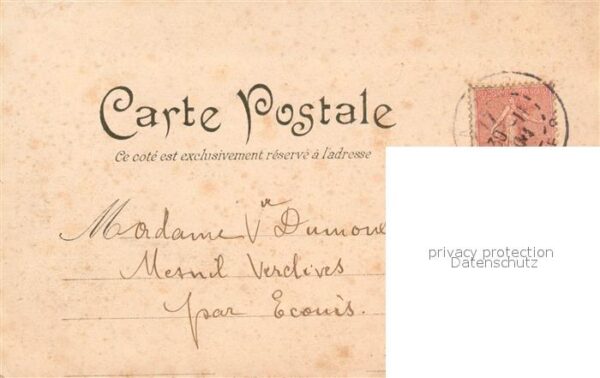 Carte Postale
Ce coté est exclusivement réservé à l'adresse
Madame Vve
Mesnil Verclives
par Ecouis.
privacy protection
Datenschutz